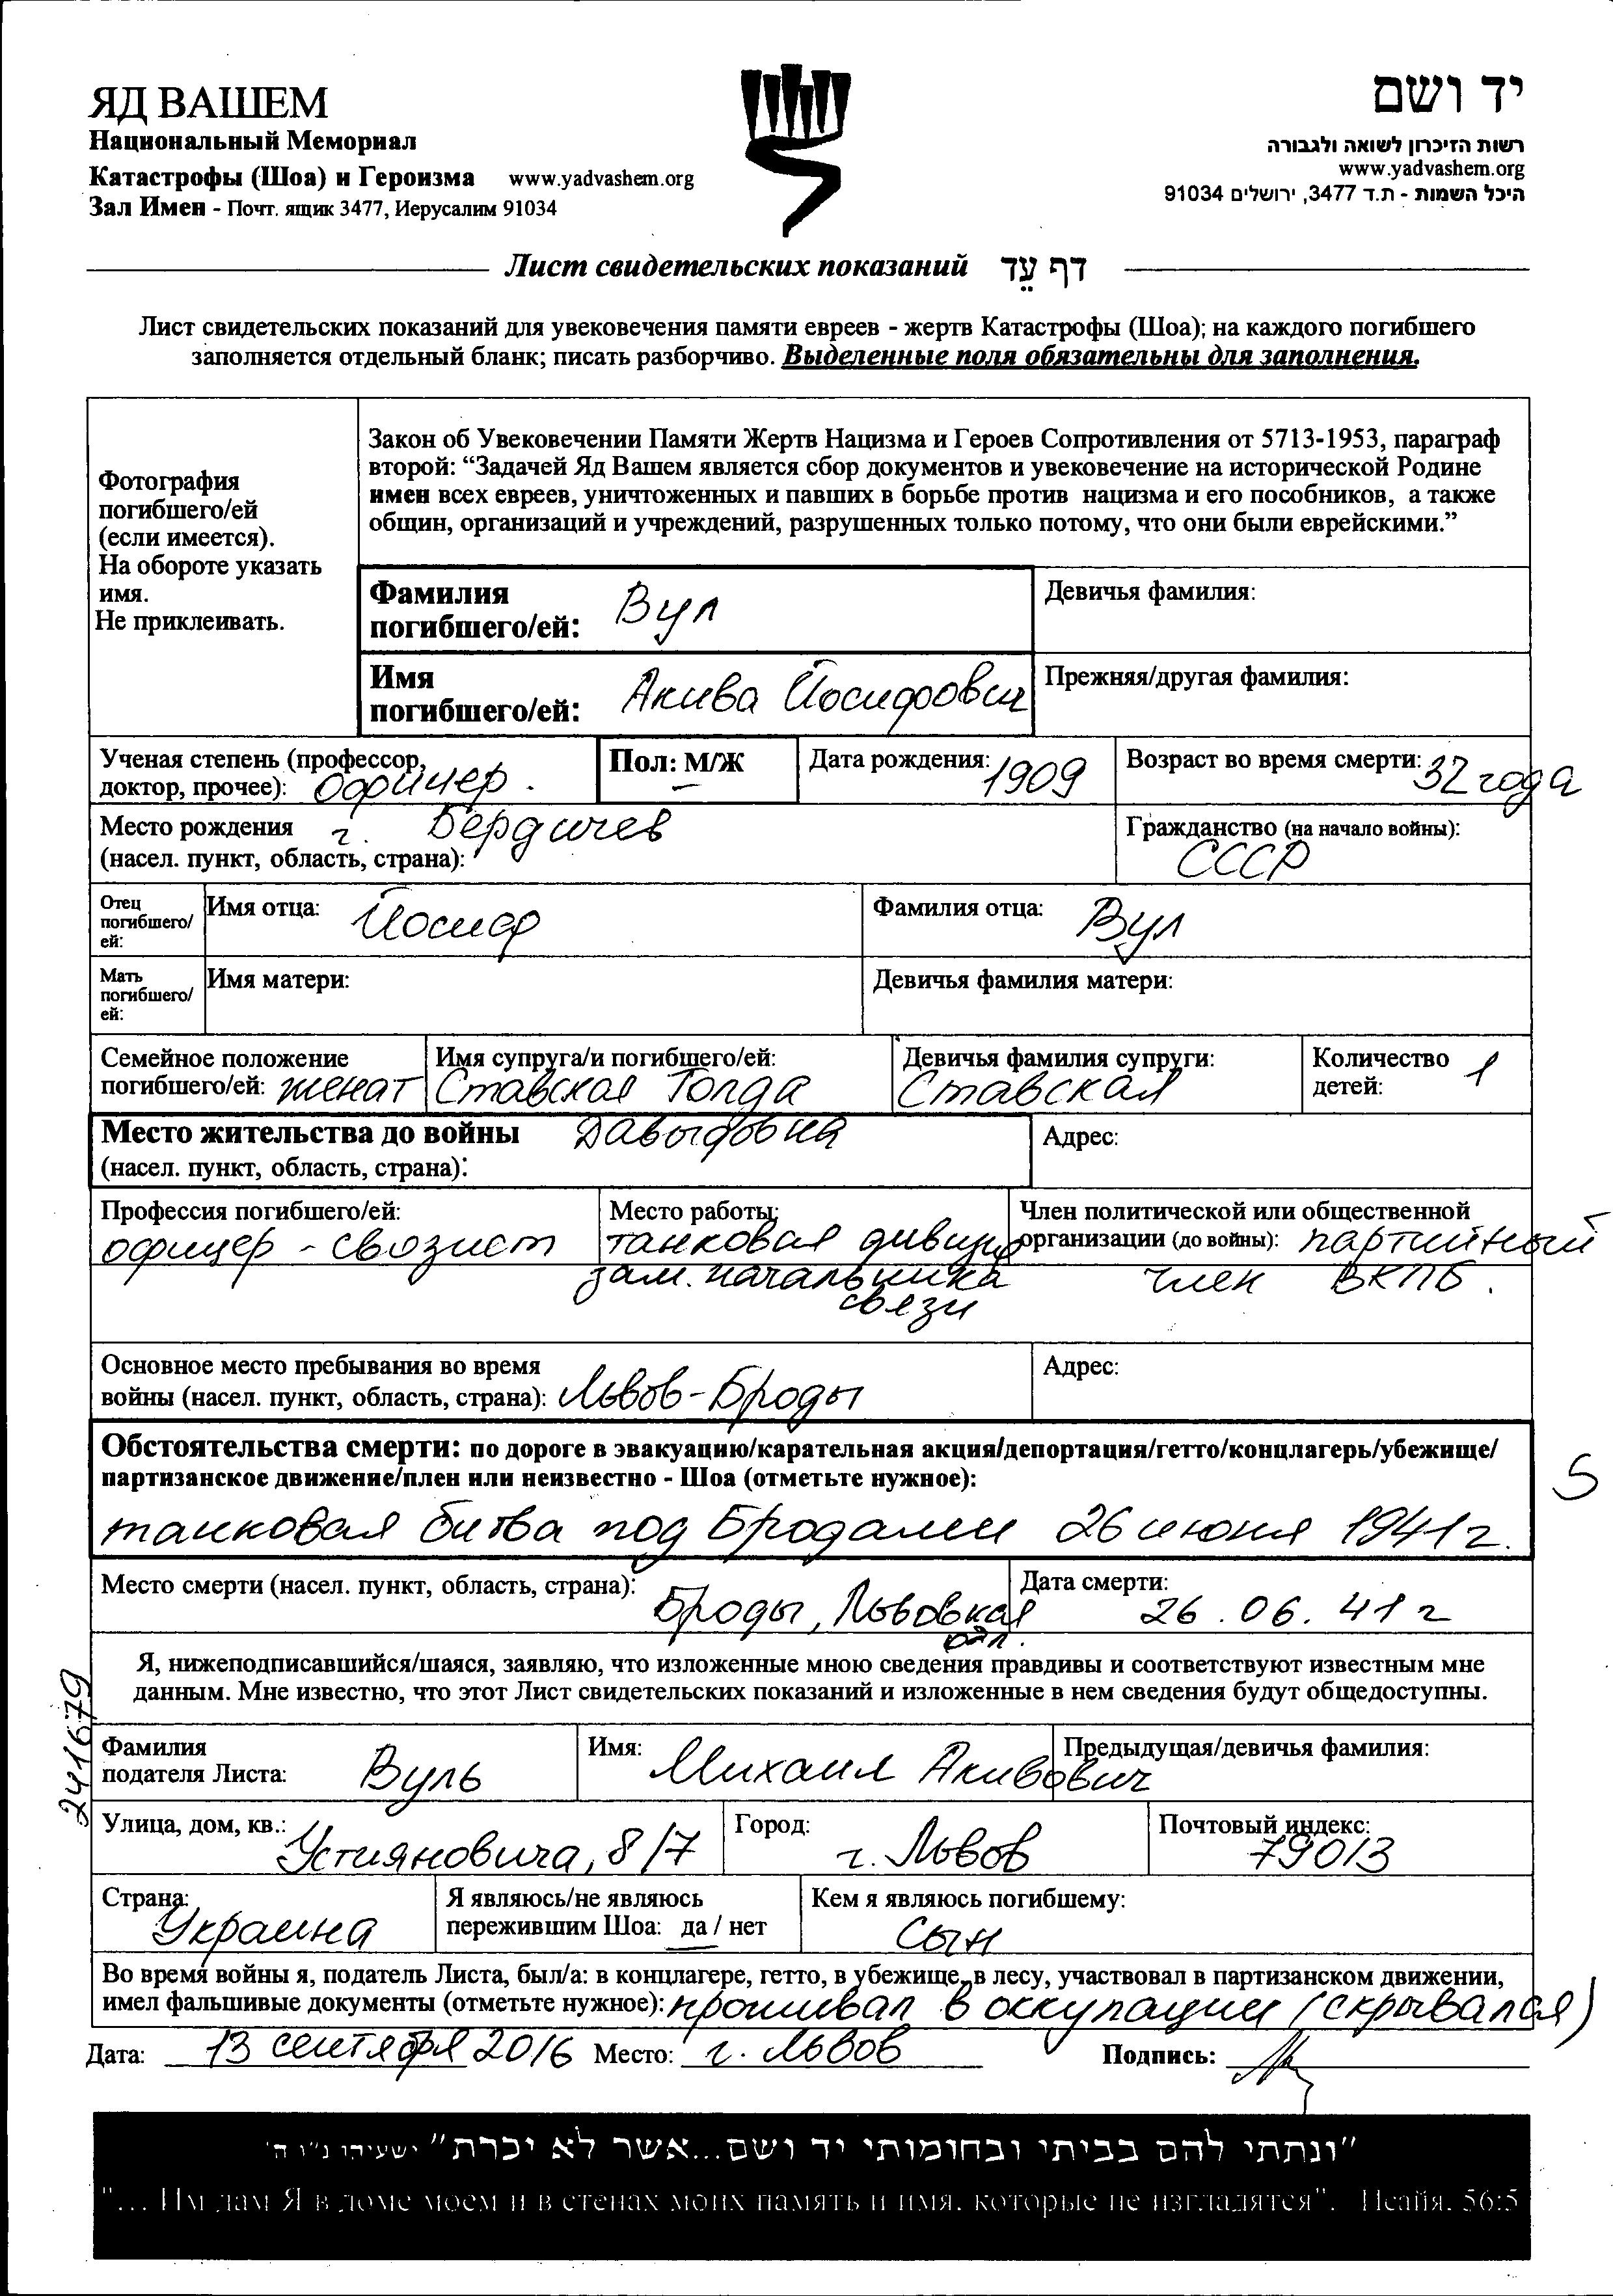 ЯД ВАШЕМ
Национальный Мемориал
Катастрофы (Шоа) и Героизма www.yadvashem.org
Зал Имен - Почт. ящик 3477, Иерусалим 91034
יד ושם
רשות הזיכרון לשואה ולגבורה
www.yadvashem.org
היכל השמות - ת.ד 3477, ירושלים 91034
Лист свидетельских показаний דף עֵד
Лист свидетельских показаний для увековечения памяти евреев - жертв Катастрофы (Шоа); на каждого погибшего
заполняется отдельный бланк; писать разборчиво. Выделенные поля обязательны для заполнения.
Фотография
погибшего/ей
(если имеется).
На обороте указать
имя.
Не приклеивать.
Закон об Увековечении Памяти Жертв Нацизма и Героев Сопротивления от 5713-1953, параграф
второй: “Задачей Яд Вашем является сбор документов и увековечение на исторической Родине
имен всех евреев, уничтоженных и павших в борьбе против нацизма и его пособников, а также
общин, организаций и учреждений, разрушенных только потому, что они были еврейскими.”
Фамилия
погибшего/ей: Вул
Девичья фамилия:
Имя
погибшего/ей: Акива Йосифович
Прежняя/другая фамилия:
Ученая степень (профессор,
доктор, прочее): офицер.
Пол: М/Ж
Дата рождения: 1909
Возраст во время смерти: 32 года
Место рождения г. Бердичев
(насел. пункт, область, страна):
Гражданство (на начало войны):
СССР
Отец
погибшего/
ей:
Имя отца: Йосиф
Фамилия отца: Вул
Мать
погибшего/
ей:
Имя матери:
Девичья фамилия матери:
Семейное положение
погибшего/ей: женат
Имя супруга/и погибшего/ей:
Ставская Голда
Давыдовна
Девичья фамилия супруги:
Ставская
Количество
детей: 1
Место жительства до войны
(насел. пункт, область, страна):
Адрес:
Профессия погибшего/ей:
офицер - связист
Место работы:
танковая дивизия
зам. начальника
связи
Член политической или общественной
организации (до войны): партийный
член ВКПБ.
Основное место пребывания во время
войны (насел. пункт, область, страна): Львов-Броды
Адрес:
Обстоятельства смерти: по дороге в эвакуацию/карательная акция/депортация/гетто/концлагерь/убежище/
партизанское движение/плен или неизвестно - Шоа (отметьте нужное):
S
танковая битва под Бродами 26 июня 1941г.
Место смерти (насел. пункт, область, страна):
Броды, Львовская
обл.
Дата смерти:
26.06.41г
Я, нижеподписавшийся/шаяся, заявляю, что изложенные мною сведения правдивы и соответствуют известным мне
данным. Мне известно, что этот Лист свидетельских показаний и изложенные в нем сведения будут общедоступны.
241679
Фамилия
подателя Листа: Вуль
Имя: Михаил Акивович
Предыдущая/девичья фамилия:
Улица, дом, кв.:
Устияновича, 8/7
Город:
г. Львов
Почтовый индекс:
79013
Страна:
Украина
Я являюсь/не являюсь
пережившим Шоа: да / нет
Кем я являюсь погибшему:
Сын
Во время войны я, податель Листа, был/а: в концлагере, гетто, в убежище, в лесу, участвовал в партизанском движении,
имел фальшивые документы (отметьте нужное): проживал в оккупации (скрывался)
Дата: 13 сентября 2016 Место: г. Львов Подпись:
"ונתתי להם בביתי ובחומותי יד ושם...אשר לא יכרת" ישעיהו נ"ו ה'
"... Им дам Я в доме моем и в стенах моих память и имя, которые не изгладятся". Исайя. 56:5